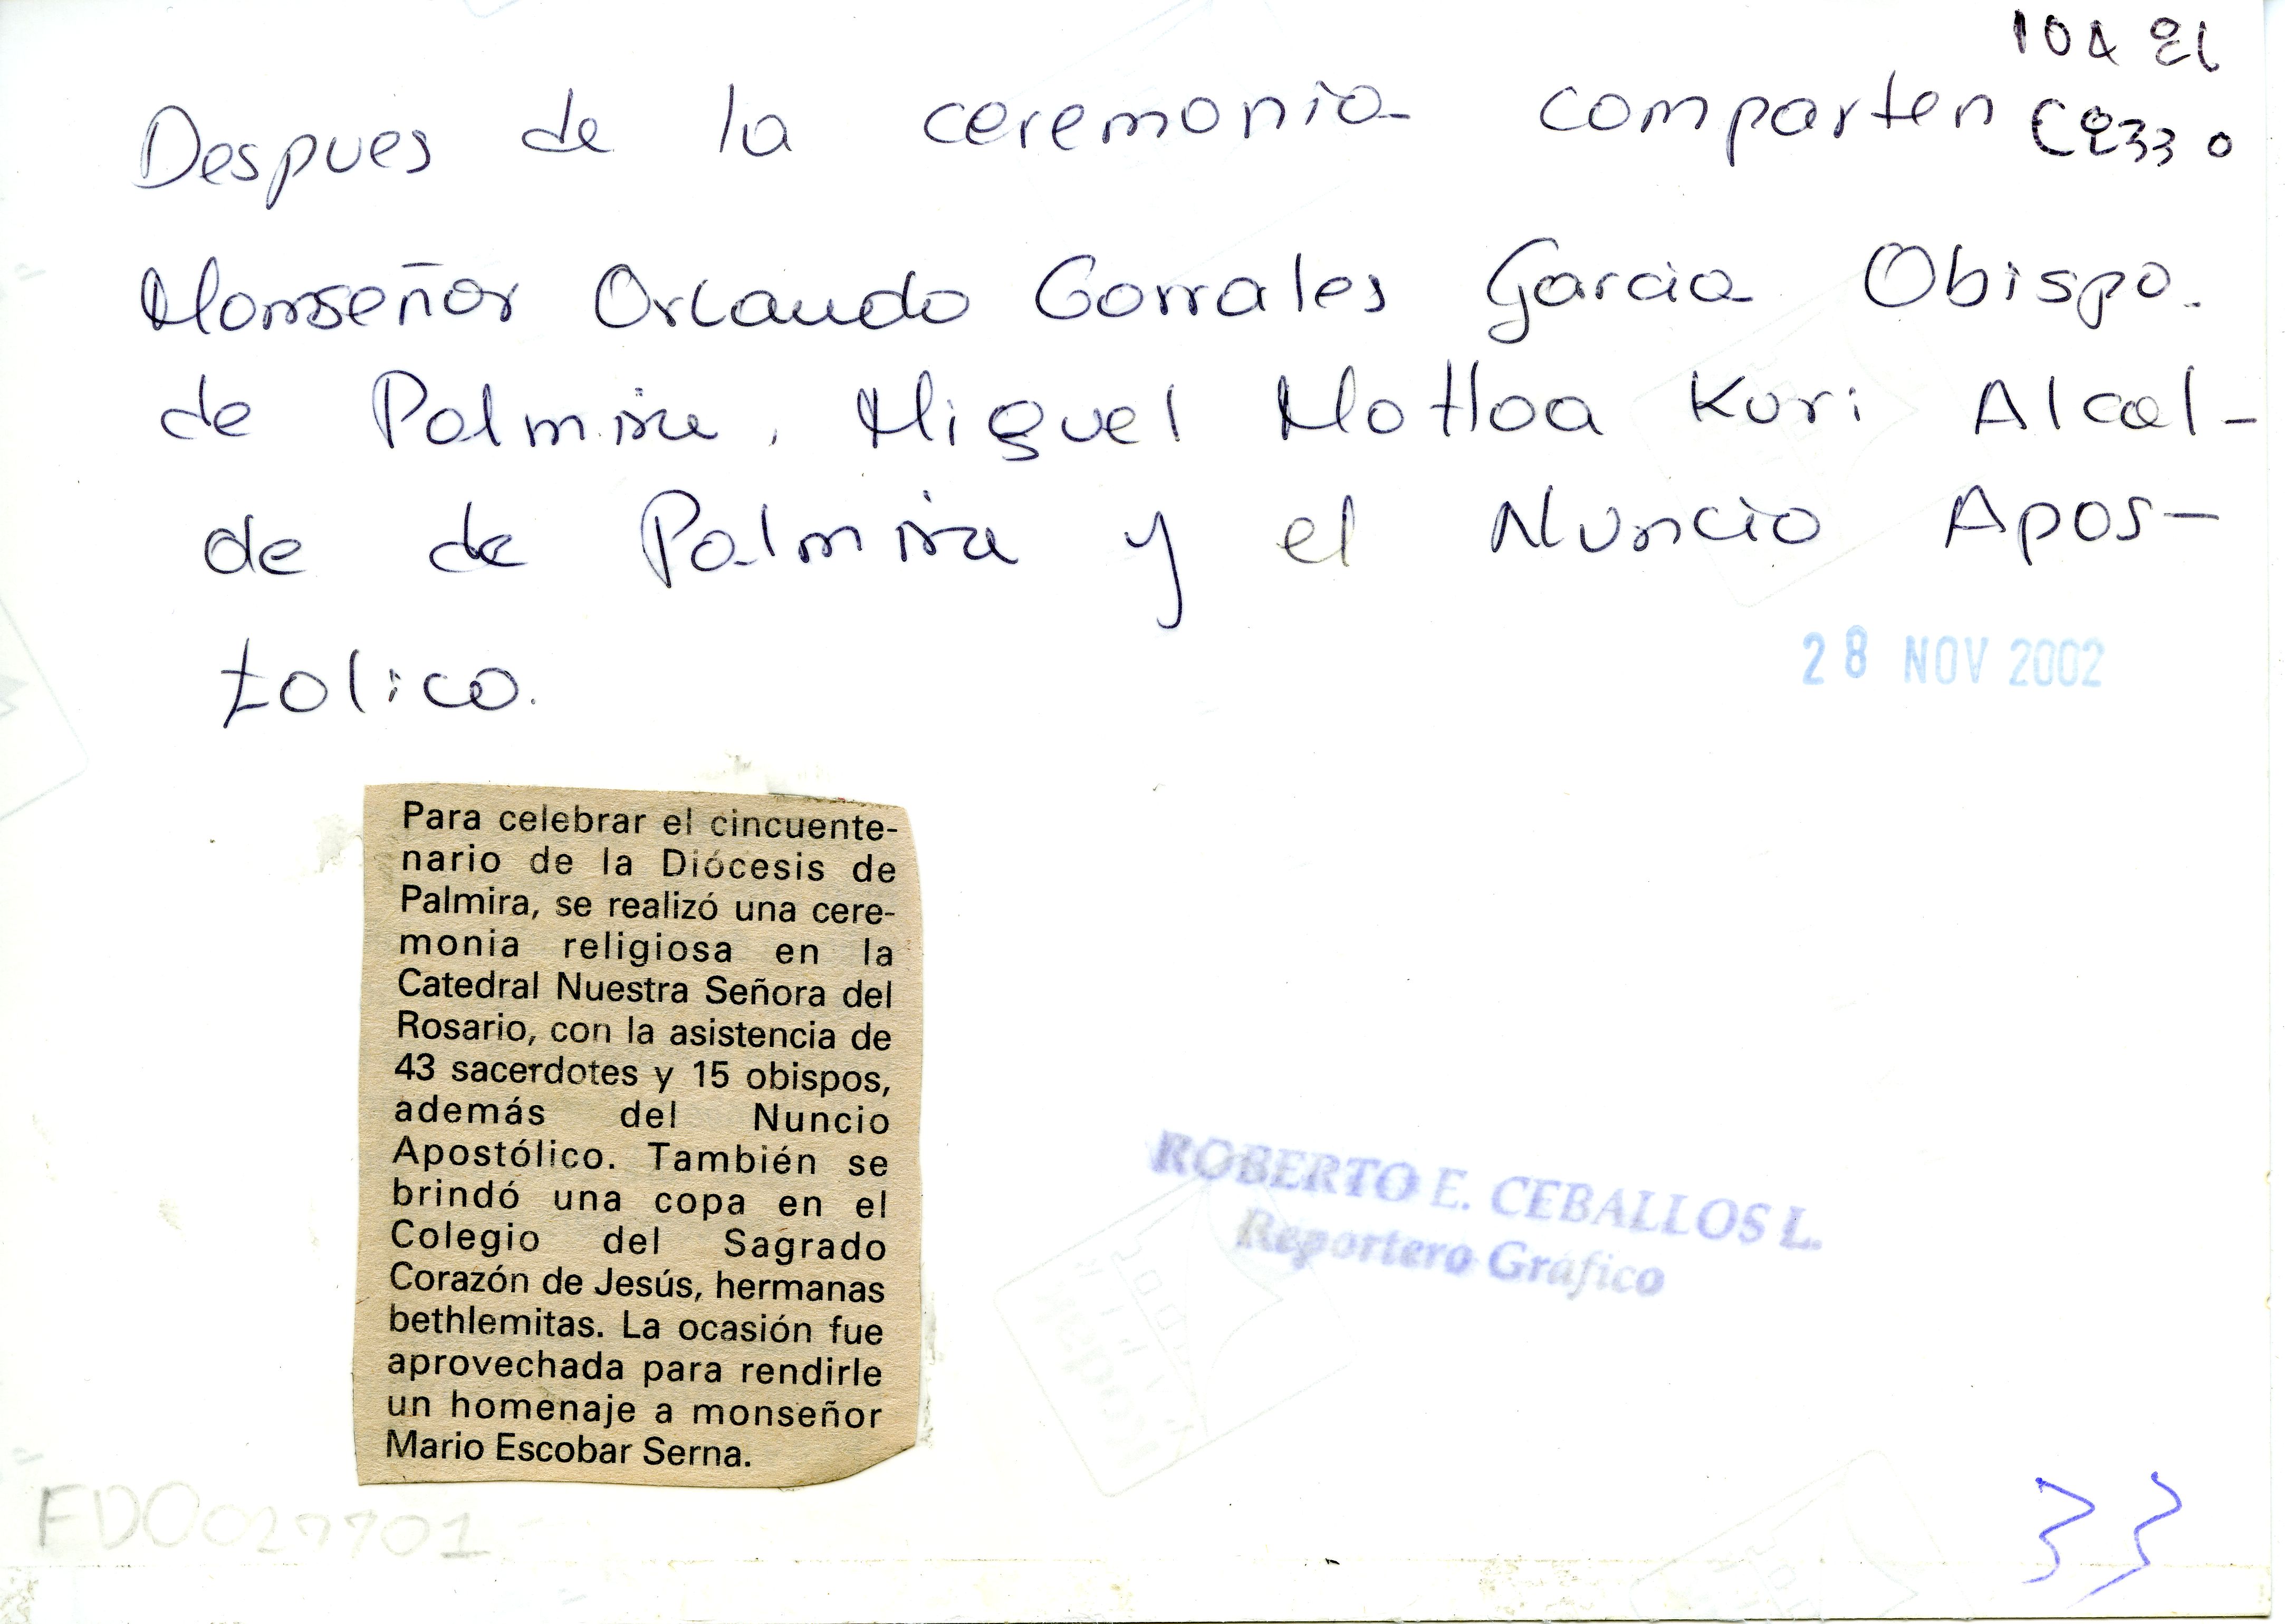 10A 21
Despues de la ceremonia comparten
C2330
Monseñor Orlando Corrales Garcia Obispo.
de Palmira, Miguel Motloa Kuri Alcal-
de de Palmira y el Nuncio Apos-
tolico.
28 NOV 2002
Para celebrar el cincuente-
nario de la Diócesis de
Palmira, se realizó una cere-
monia religiosa en la
Catedral Nuestra Señora del
Rosario, con la asistencia de
43 sacerdotes y 15 obispos,
además del Nuncio
Apostólico. También se
brindó una copa en el
Colegio del Sagrado
Corazón de Jesús, hermanas
bethlemitas. La ocasión fue
aprovechada para rendirle
un homenaje a monseñor
Mario Escobar Serna.
ROBERTO E. CEBALLOS L.
Reportero Gráfico
FDO027701
33